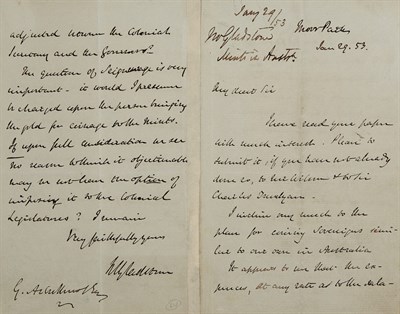 Jany 29/53
W Gladstone
Mints in Austr.
Moor Park
Jan 29. 53.
My dear Sir
I have read your paper
with much interest. Please to
submit it, if you have not already
done so, to the and to Sir
Charles Trevelyan.
I incline very much to the
plan for coining Sovereigns simi-
lar to our own in Australia
It appears to me that the ex-
penses, at any rate as to the
adjusted between the Colonial
Treasury and the Governor?
The question of Seignorage is very
important - it would I presume
be charged upon the person bringing
the gold for coinage to the Mints.
If upon full consideration we see
no reason to think it objectionable
may we not leave the option of
imposing it to the Colonial
Legislatures? I remain
Very faithfully yours
WEGladstone
G. Arbuthnot Esq